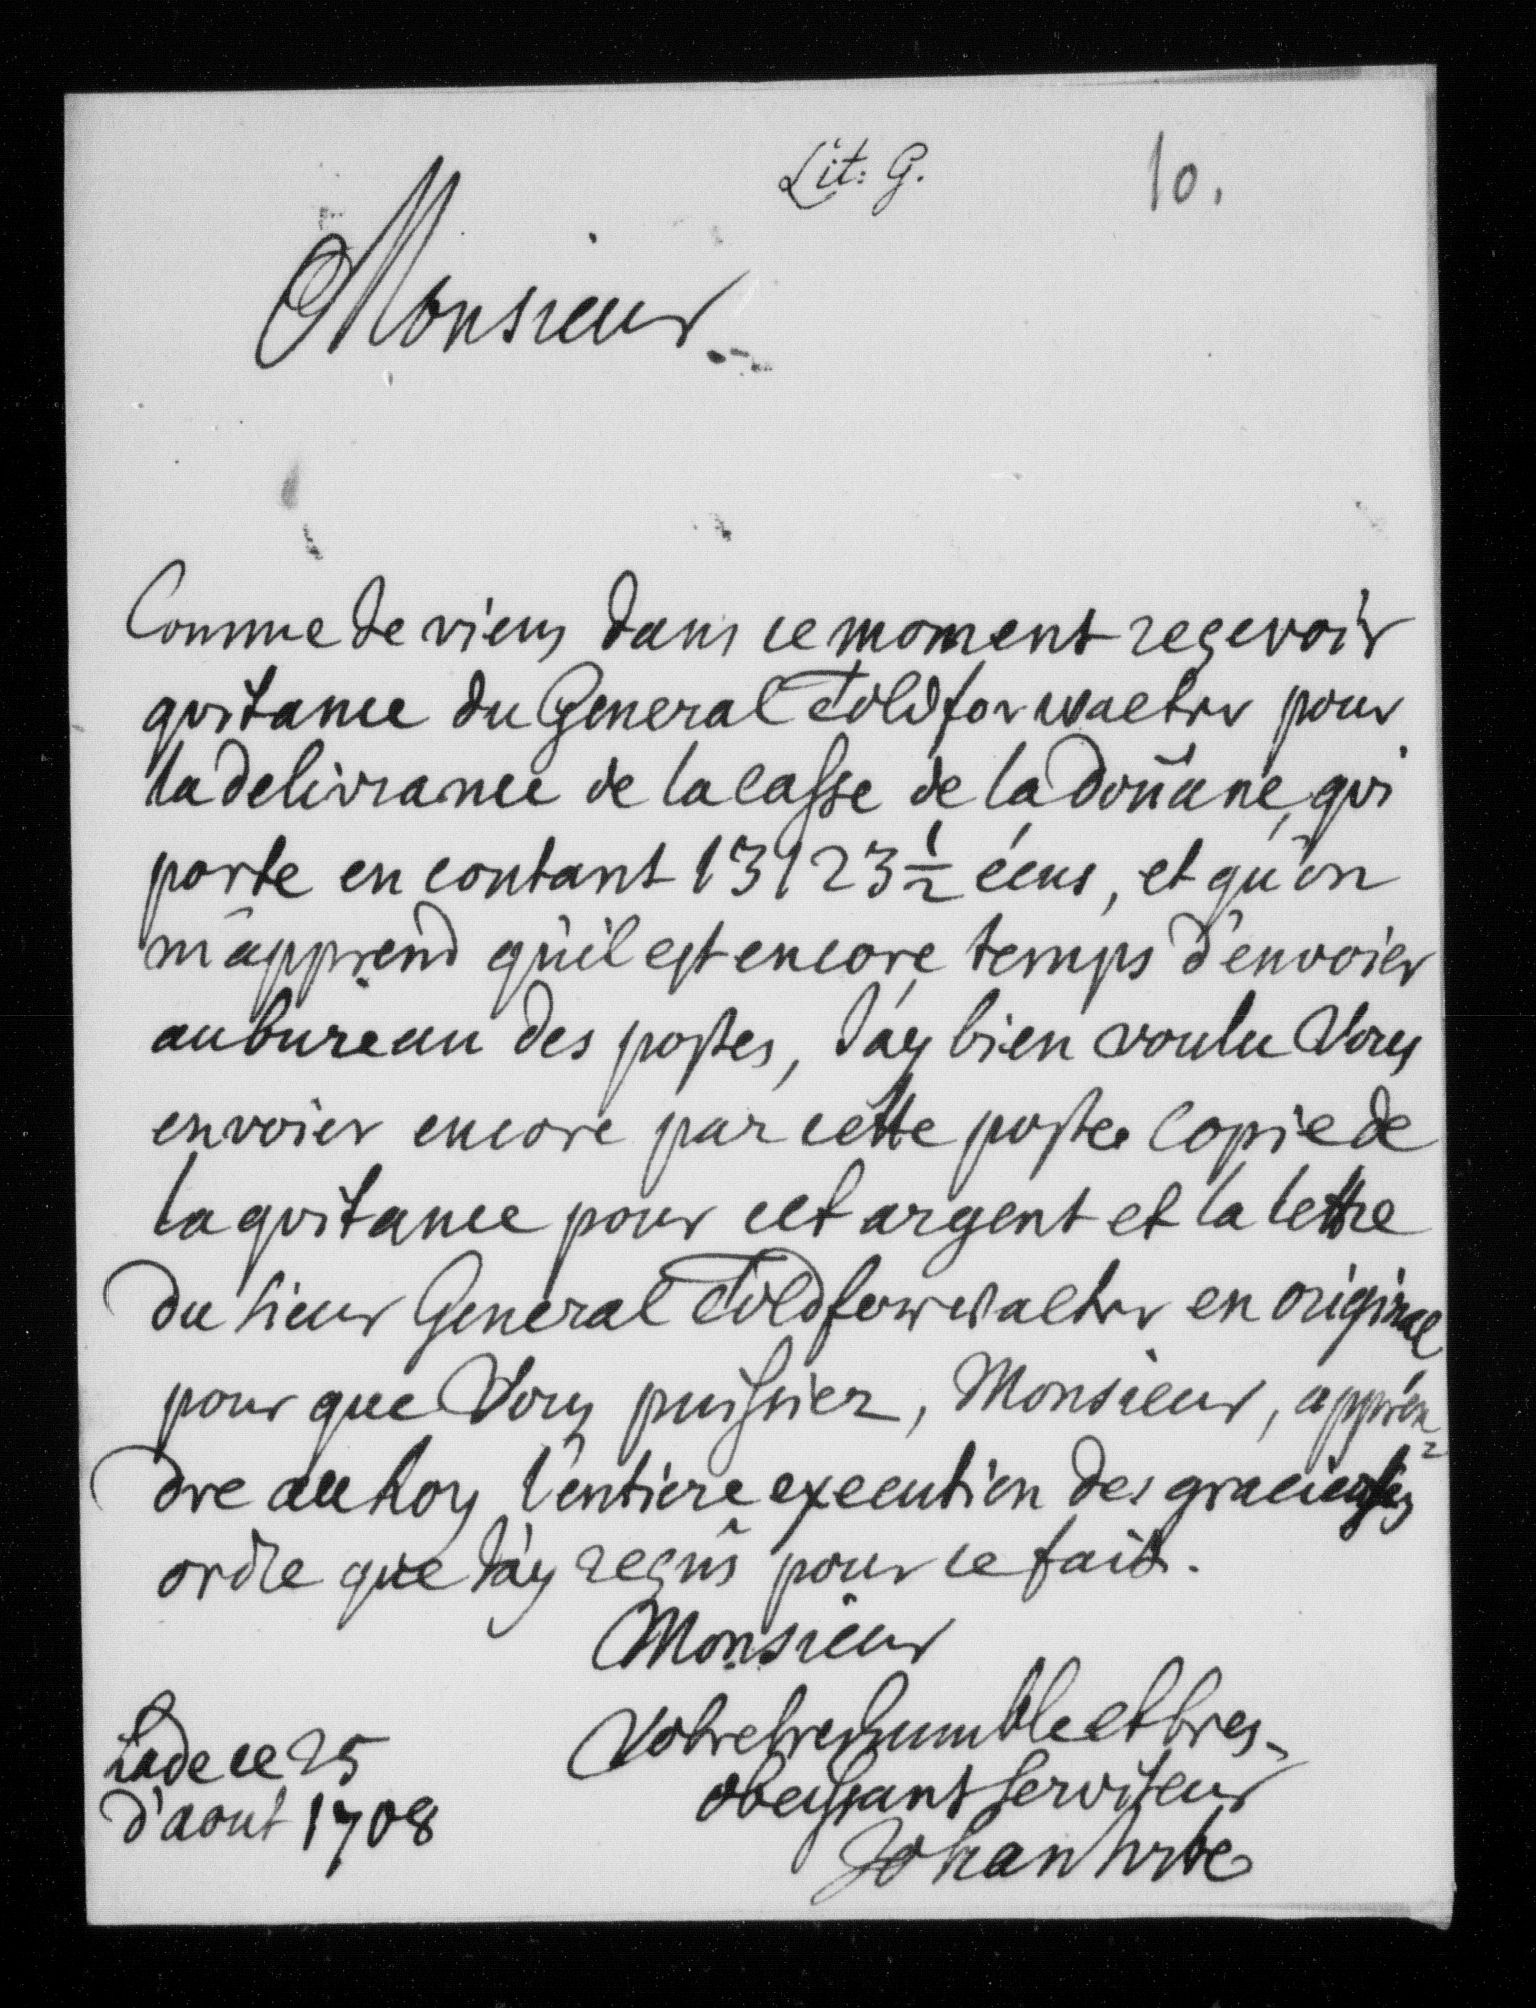 Lit: G. 10.
Monsieur
Comme Je viens dans ce moment reçevoir
quitance du General Tollforwalter pour
la delivrance de la casse de la doüane, qui
porte en contant 13123 1/2 écus, et qu'on
m'apprend qu'il est encore temps d'envoier
au bureau des postes, J'ay bien voulu Vous
envoier encore par cette poste copie de
la quitance pour cet argent et la lettre
du sieur General Tolldforwalter en original
pour que Vous puissiez, Monsieur, appren=
dre au Roy l'entiere execution des gracieuses
ordre que J'ay reçus pour ce fait.
Monsieur
Votre tres humble et tres-
obeissant serviteur
Johan
ce 25
d'aout 1708